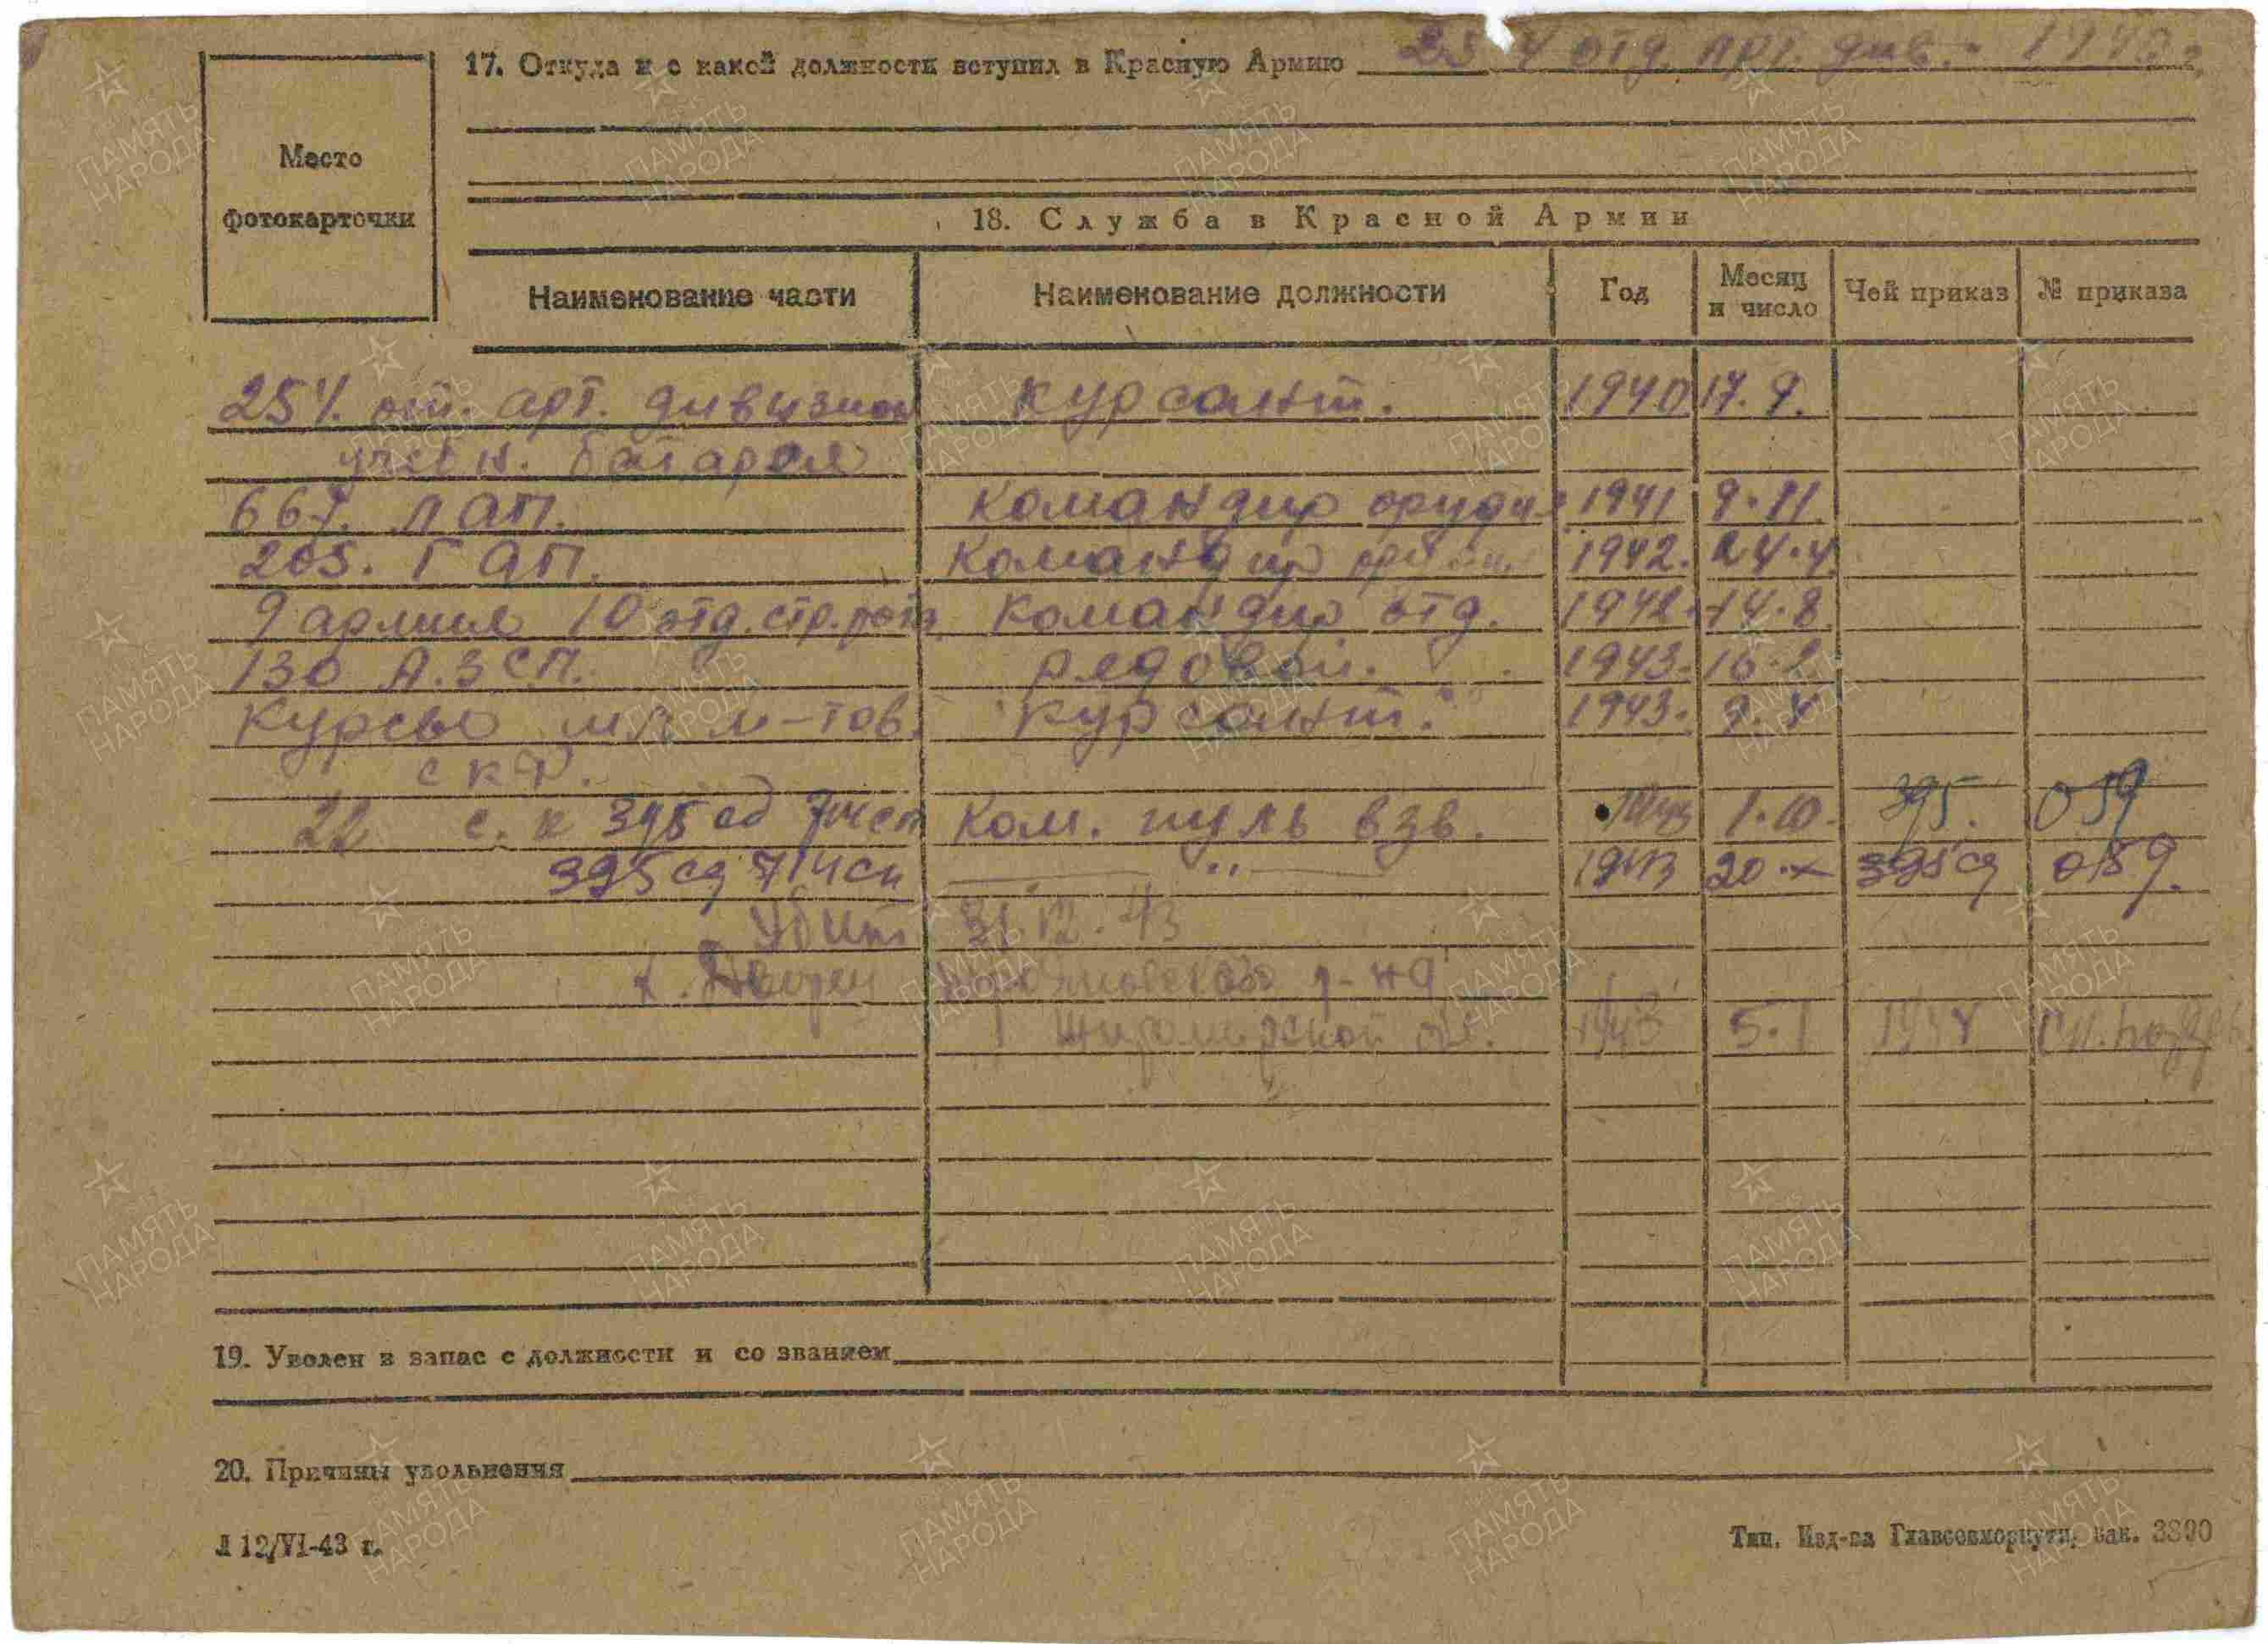 17. Откуда и с какой должности вступил в Красную Армию 254 отд. арт. див. 1940 г.
Место
фотокарточки
18. Служба в Красной Армии
Наименование части Наименование должности Год Месяц и число Чей приказ № приказа
254. от. арт. дивизион курсант. 1940 17.9.
батарея
667. ЛАП. командир оруди 1941 9.11.
205. ГАП. командир 1942. 24.4
9 армия 10 отд. стр. рота командир отд. 1942. 14.8.
130 А.ЗСП. рядовой. 1943. 16.2
курсы мл л-тов. курсант. 1943. 9.4
СКФ.
22 с.к 395 сд 714 сп ком. пуль взв. 1943 1.10. 395. 059
395 сд 714 сп —— " —— 1943 20.X 395 сд 059.
Убит 31.12.43
р-на
Житомирской обл. 1943 5.1
19. Уволен в запас с должности и со званием
20. Причины увольнения
Л 12/VI-43 г.
Тип. Изд-ва Главсевморпути, зак. 3390
ПАМЯТЬ
НАРОДА